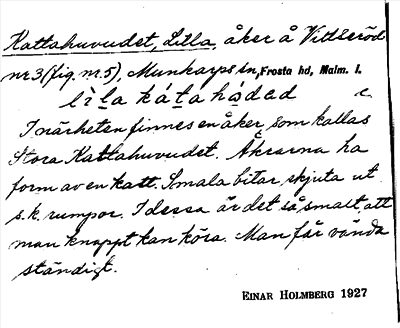 Kattahuvudet, Lilla, åker å Vittseröd
nr 3 (fig. nr. 5), Munkarps sn, Frosta hd, Malm. l.
lìla káta ho̱dad c.
I närheten finnes en åker, som kallas
Stora Kattahuvudet. Åkrarna ha
form av en katt. Smala bitar skjuta ut
s.k. rumpor. I dessa är det så smalt, att
man knappt kan köra. Man får vända
ständigt.
EINAR HOLMBERG 1927